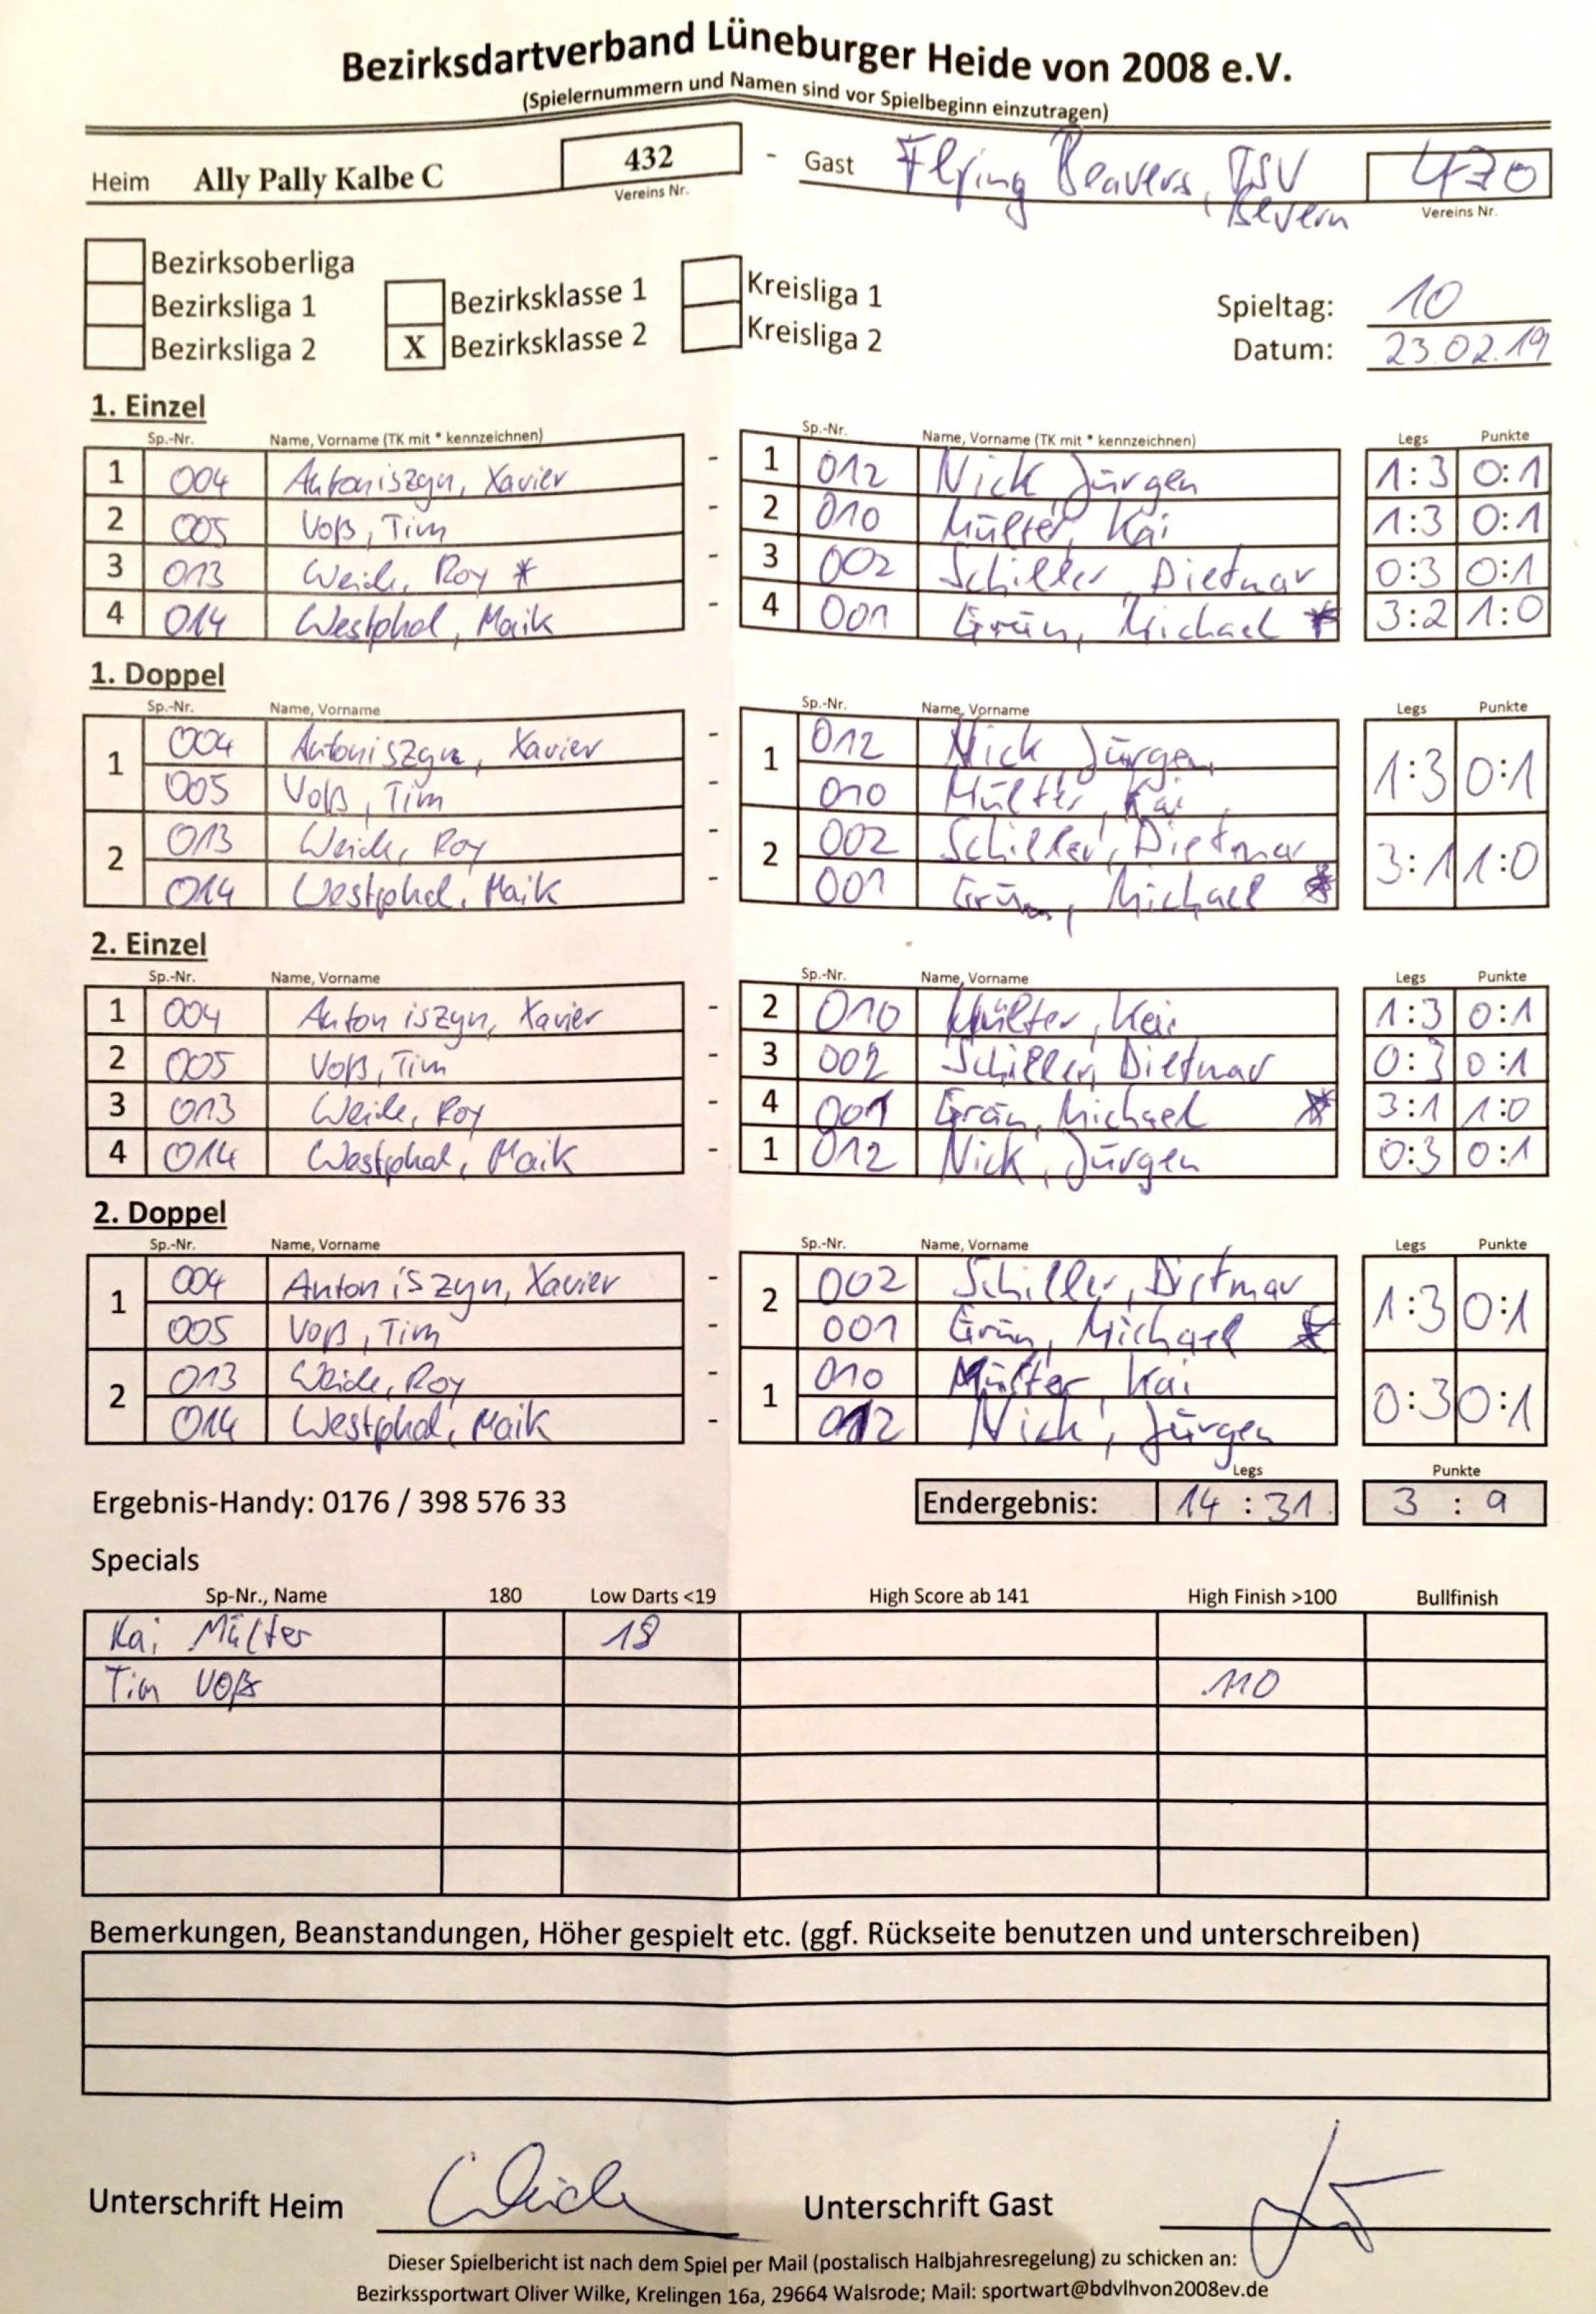 Bezirksdartverband Lüneburger Heide von 2008 e.V.
(Spielernummern und Namen sind vor Spielbeginn einzutragen)
Heim Ally Pally Kalbe C 432 - Gast Flying Beavers, TSV 470
Vereins Nr. Bevern Vereins Nr.
Bezirksoberliga
Bezirksliga 1 Bezirksklasse 1 Kreisliga 1 Spieltag: 10
Bezirksliga 2 X Bezirksklasse 2 Kreisliga 2 Datum: 23.02.19
1. Einzel
Sp.-Nr. Name, Vorname (TK mit * kennzeichnen) Sp.-Nr. Name, Vorname (TK mit * kennzeichnen) Legs Punkte
1 004 Antoniszyn, Xavier - 1 012 Nick Jürgen 1:3 0:1
2 005 Voß, Tim - 2 010 Mülter, Kai 1:3 0:1
3 013 Weide, Roy * - 3 002 Schiller, Dietmar 0:3 0:1
4 014 Westphal, Maik - 4 001 Grün, Michael * 3:2 1:0
1. Doppel
Sp.-Nr. Name, Vorname Sp.-Nr. Name, Vorname Legs Punkte
1 004 Antoniszyn, Xavier - 1 012 Nick Jürgen 1:3 0:1
005 Voß, Tim - 010 Mülter, Kai
2 013 Weide, Roy - 2 002 Schiller, Dietmar 3:1 1:0
014 Westphal, Maik - 001 Grün, Michael *
2. Einzel
Sp.-Nr. Name, Vorname Sp.-Nr. Name, Vorname Legs Punkte
1 004 Antoniszyn, Xavier - 2 010 Mülter, Kai 1:3 0:1
2 005 Voß, Tim - 3 002 Schiller, Dietmar 0:3 0:1
3 013 Weide, Roy - 4 001 Grün, Michael * 3:1 1:0
4 014 Westphal, Maik - 1 012 Nick, Jürgen 0:3 0:1
2. Doppel
Sp.-Nr. Name, Vorname Sp.-Nr. Name, Vorname Legs Punkte
1 004 Antoniszyn, Xavier - 2 002 Schiller, Dietmar 1:3 0:1
005 Voß, Tim - 001 Grün, Michael *
2 013 Weide, Roy - 1 010 Mülter, Kai 0:3 0:1
014 Westphal, Maik - 012 Nick, Jürgen
Legs Punkte
Ergebnis-Handy: 0176 / 398 576 33 Endergebnis: 14 : 31 3 : 9
Specials
Sp-Nr., Name 180 Low Darts <19 High Score ab 141 High Finish >100 Bullfinish
Kai Mülter 18
Tim Voß 110
Bemerkungen, Beanstandungen, Höher gespielt etc. (ggf. Rückseite benutzen und unterschreiben)
Unterschrift Heim Weide Unterschrift Gast
Dieser Spielbericht ist nach dem Spiel per Mail (postalisch Halbjahresregelung) zu schicken an:
Bezirkssportwart Oliver Wilke, Krelingen 16a, 29664 Walsrode; Mail: sportwart@bdvlhvon2008ev.de